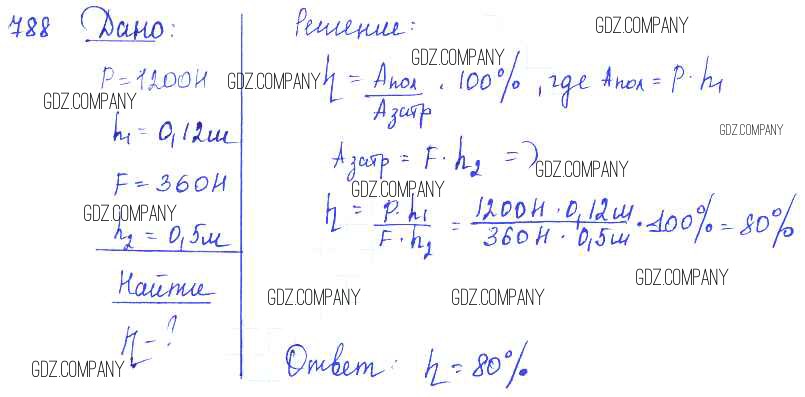 788 Дано:
P = 1200Н
h₁ = 0,12м
F = 360Н
h₂ = 0,5м
Найти
η - ?
Решение:
η = Aпол / Aзатр · 100%, где Aпол = P · h₁
Aзатр = F · h₂ =>
η = P·h₁ / F·h₂ = 1200Н · 0,12м / 360Н · 0,5м · 100% = 80%
Ответ: η = 80%
GDZ.COMPANY
GDZ.COMPANY
GDZ.COMPANY
GDZ.COMPANY
GDZ.COMPANY
GDZ.COMPANY
GDZ.COMPANY
GDZ.COMPANY
GDZ.COMPANY
GDZ.COMPANY
GDZ.COMPANY
GDZ.COMPANY